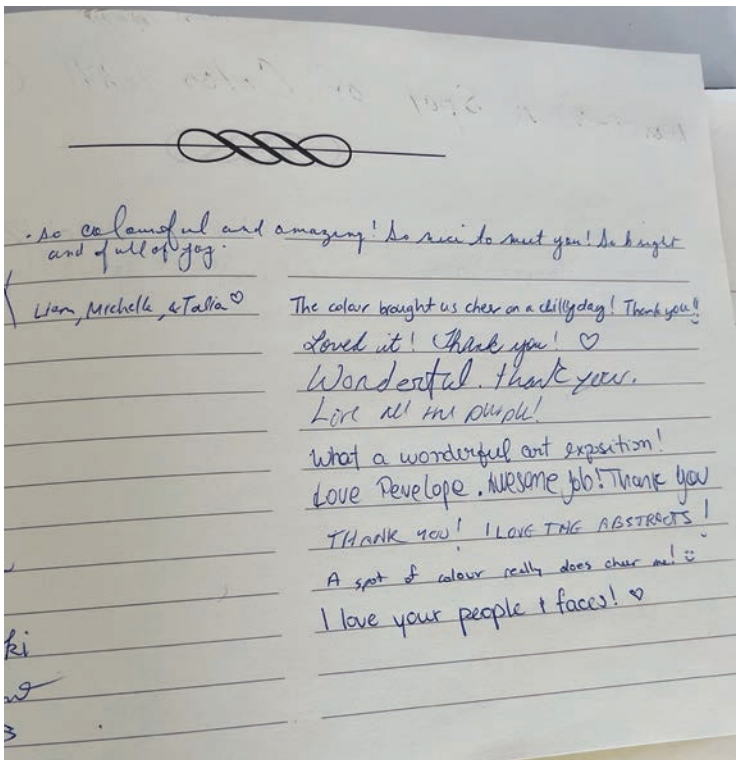 . so colourful and amazing! So nice to meet you! So bright
and full of joy.
Liam, Michelle, & Talia ♡
The colour brought us cheer on a chilly day! Thank you!!
Loved it! Thank you! ♡
Wonderful. thank you.
all the purple!
What a wonderful art exposition!
Love Penelope. Awesome job! Thank you
THANK YOU! I LOVE THE ABSTRACTS!
A spot of colour really does cheer me! :)
I love your people & faces! ♡
ki
3